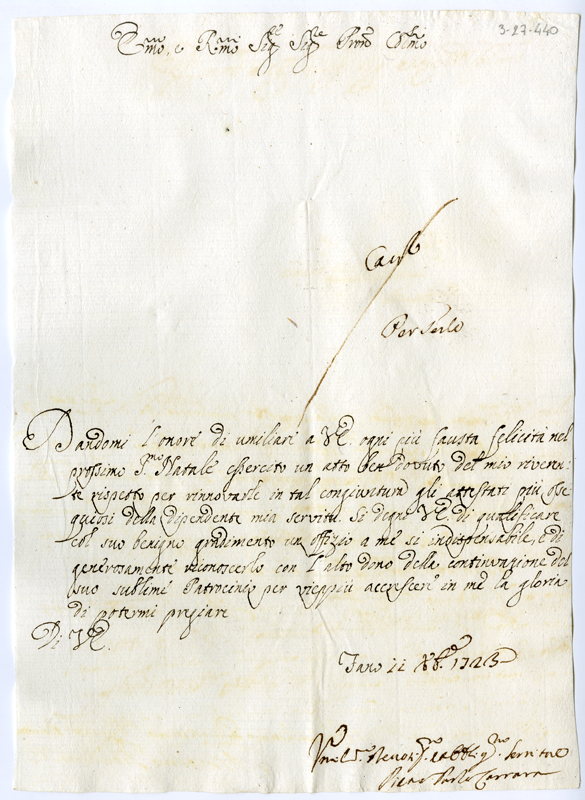 3-27-440
Em̃o, e Rm̃o Sig.re Sig.re Pron̄e Col̄mo
Car.l
Porselo
Dandomi l'onore di umiliare a V.E. ogni più fausta felicità nel
prossimo S.mo Natale essercito un atto ben dovuto del mio riveren:
te rispetto per rinnovarle in tal congiuntura gli attestati più osse
quiosi della dipendente mia servitù. Si degni V.E. di qualificare
col suo benigno gradimento un offizio a me sì indispensabile, e di
generosamente riconoscerlo con l'alto dono della continuazione del
suo sublime Patrocinio per vieppiù accrescere in me la gloria
di potermi pregiare
Di V.E.
Fano 11 Xb.e 1723
Um.o Devot. ed Obblig.mo Servitore
Carrara